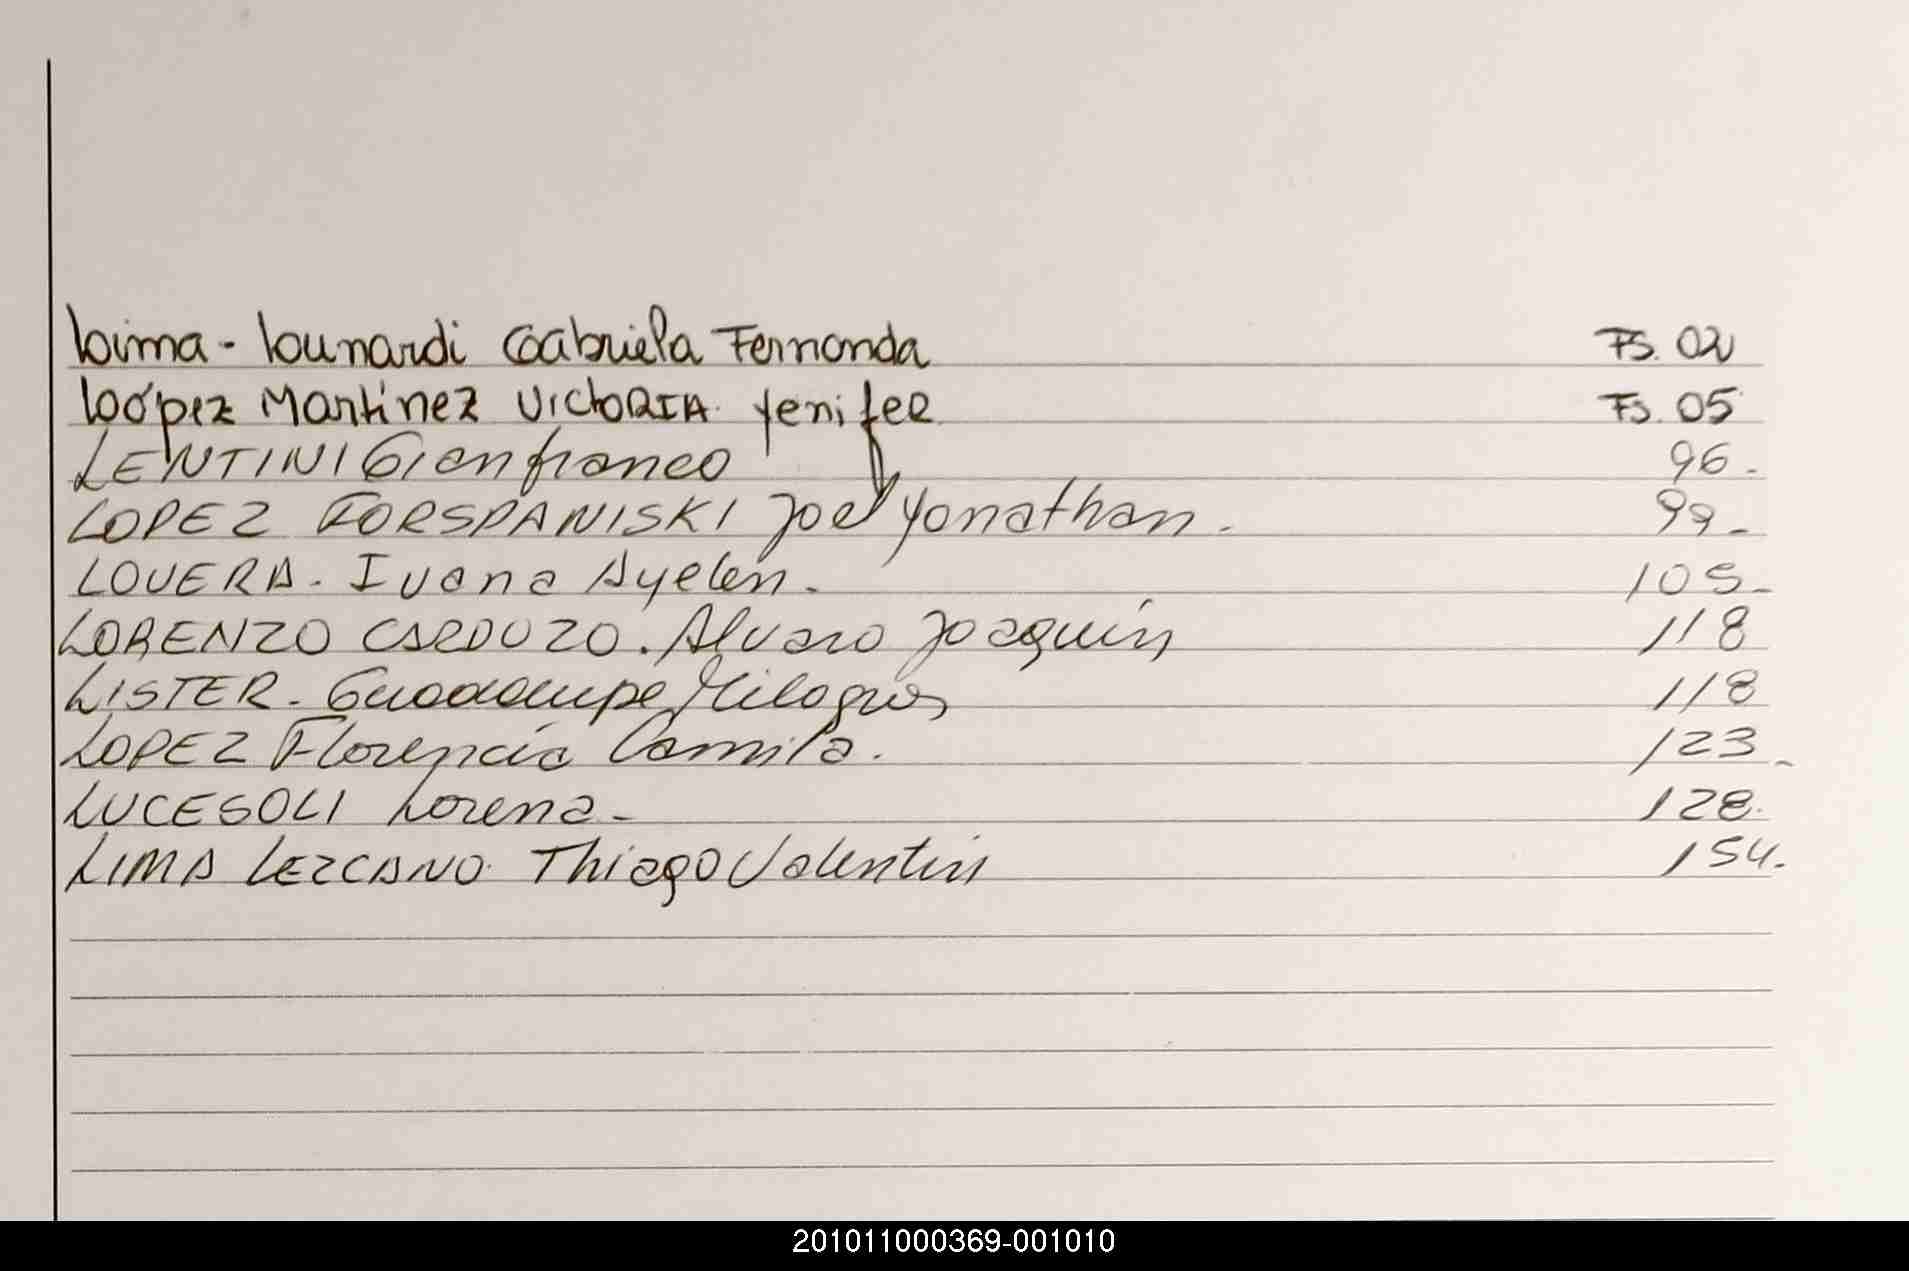 Lima - Lunardi Gabriela Fernanda Fs. 02
López Martinez VICTORIA Yenifer Fs. 05
LENTINI Gianfranco 96.
LOPEZ FORSPANISKI Joel Yonathan. 99-
LOVERA. Ivana Ayelen. 105-
LORENZO CARDOZO. Alvaro Joaquín 118
LISTER. Guadalupe Milagros 118
LOPEZ Florencia Camila. 123-
LUCESOLI Lorena- 128.
LIMA LEZCANO Thiago Valentin 154.
201011000369-001010